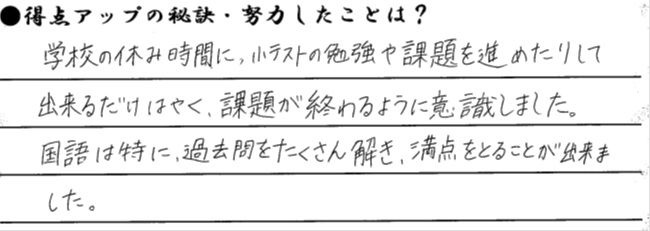 ●得点アップの秘訣・努力したことは？
学校の休み時間に、小テストの勉強や課題を進めたりして
出来るだけはやく、課題が終わるように意識しました。
国語は特に、過去問をたくさん解き、満点をとることが出来ま
した。